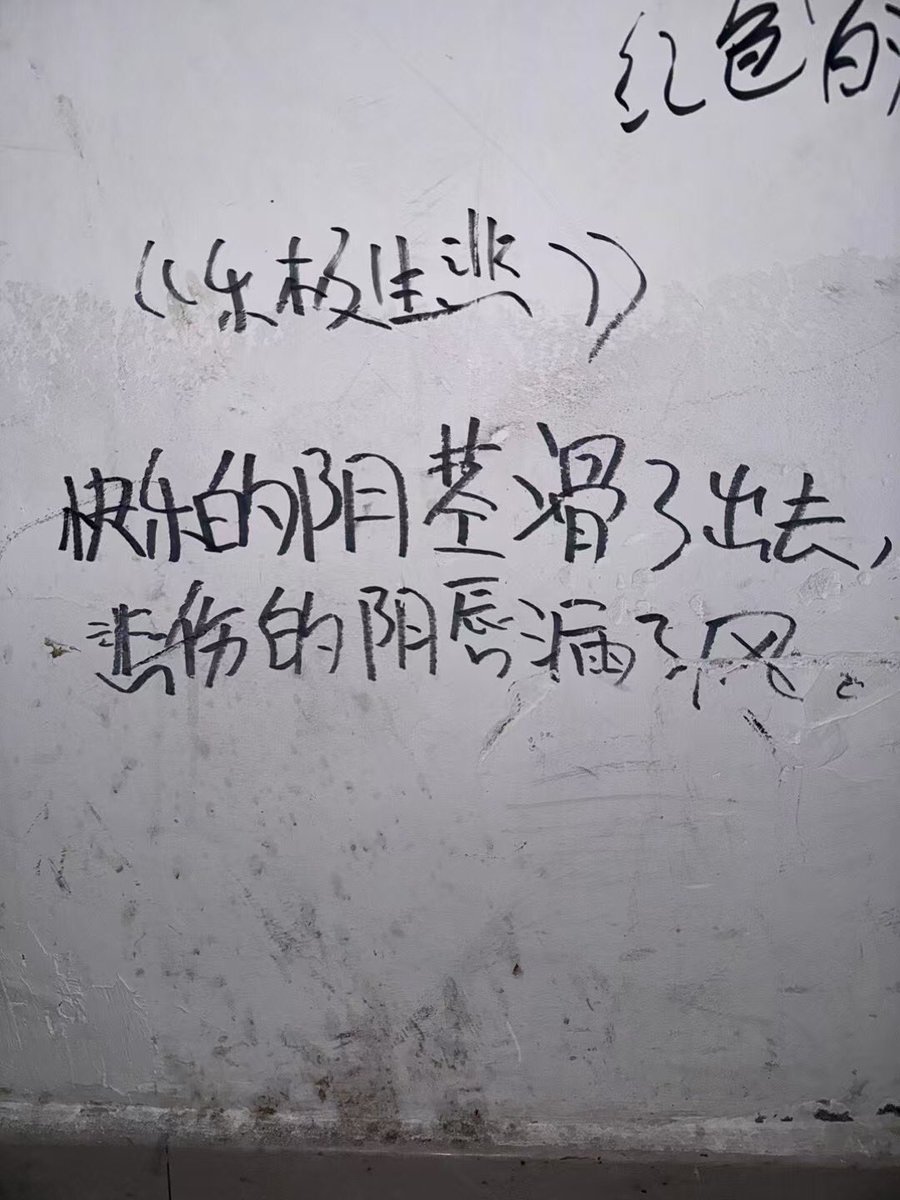 红色的
《乐极生悲》
快乐的阴茎滑了出去，
悲伤的阴唇漏了风。